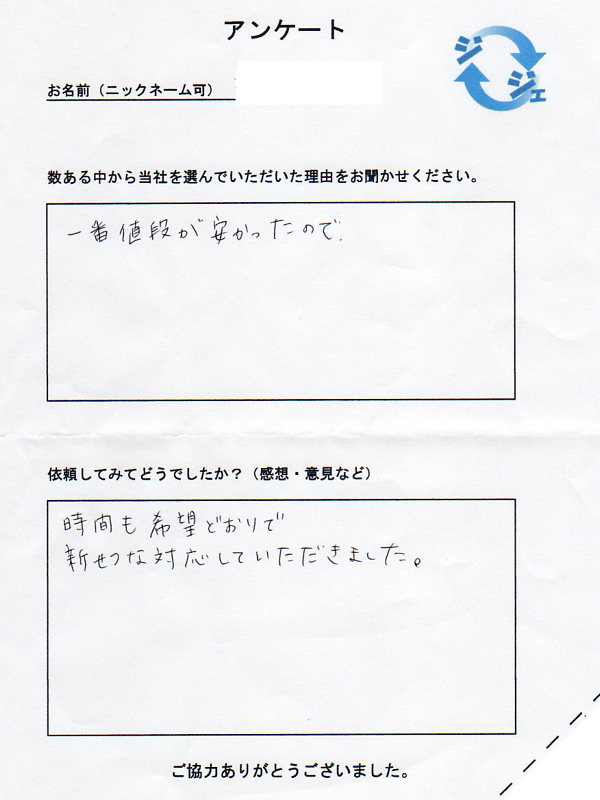 アンケート
ジジェ
お名前（ニックネーム可）
数ある中から当社を選んでいただいた理由をお聞かせください。
一番値段が安かったので.
依頼してみてどうでしたか？（感想・意見など）
時間も希望どおりで
新せつな対応していただきました。
ご協力ありがとうございました。